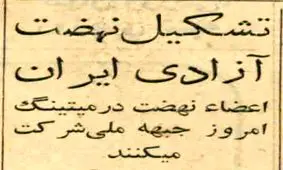 تشکیل نهضت
آزادی ایران
اعضاء نهضت در میتینگ
امروز جبهه ملی شرکت
میکنند